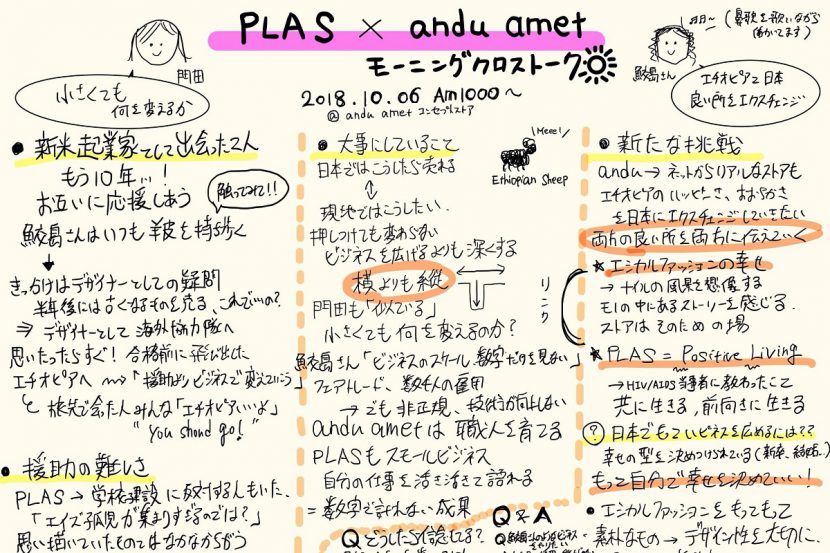 PLAS × andu amet
モーニングクロストーク
2018.10.06 Am1000〜
@ andu amet コンセプトストア
門田
小さくても
何を変えるか
(鼻歌を歌いながら
鮫島さん
エチオピアと日本
良い所をエクスチェンジ
• 新米起業家として出会った2人
もう10年…!
お互いに応援しあう
触ってみて!!
鮫島さんはいつも羊皮を持ち歩く
↓
きっかけはデザイナーとしての疑問
半年後には古くなるものを売る、これでいいの?
⇒ デザイナーとして 海外協力隊へ
思いたったらすぐ! 合格前に飛び出した
エチオピアへ 「援助よりビジネスで変えていこう
と 旅先で会た人みんな「エチオピアいいよ」
"You should go!"
• 援助の難しさ
PLAS → 学校建設に反対する人もいた、
「エイズ孤児が集まりすぎるのでは?」
思い描いていたものではなかなかちがう
• 大事にしていること
日本ではこうしたら売れる
↕
現地ではこうしたい、
押しつけても変わらない
ビジネスを広げるよりも深くする
横よりも縦
門田も「似ている」
小さくても何を変えるのか?
リンク
鮫島さん「ビジネスのスケール、数字だけを見ない」
フェアトレード、数千人の雇用
→ でも非正規、技術が向上しない
andu ametは 職人を育てる
PLASもスモールビジネス
自分の仕事を活き活きと語れる
= 数字で計れない成果
Qどうしたら信じる?
Q & A
Meee!
Ethiopian Sheep
• 新たな挑戦
andu → ネットからリアルなストアも
エチオピアのハッピーさ、おおらかさ
を日本にエクスチェンジしていきたい
両方の良い所を両方に伝えていく
★ エシカルファッションの幸せ
→ ナイルの風景を想像する
モノの中にあるストーリーを感じる
ストアはそのための場
★ PLAS = Positive Living
→ HIV/AIDS当事者に教わったこと
共に生きる、前向きに生きる
? 日本でもていビネスを広めるには??
幸せの型を決めつけられている(新卒、結婚..)
もって自分で幸せを決めていい!
• エシカルファッションをもってもって
素朴なもの → デザイン性を大切に、